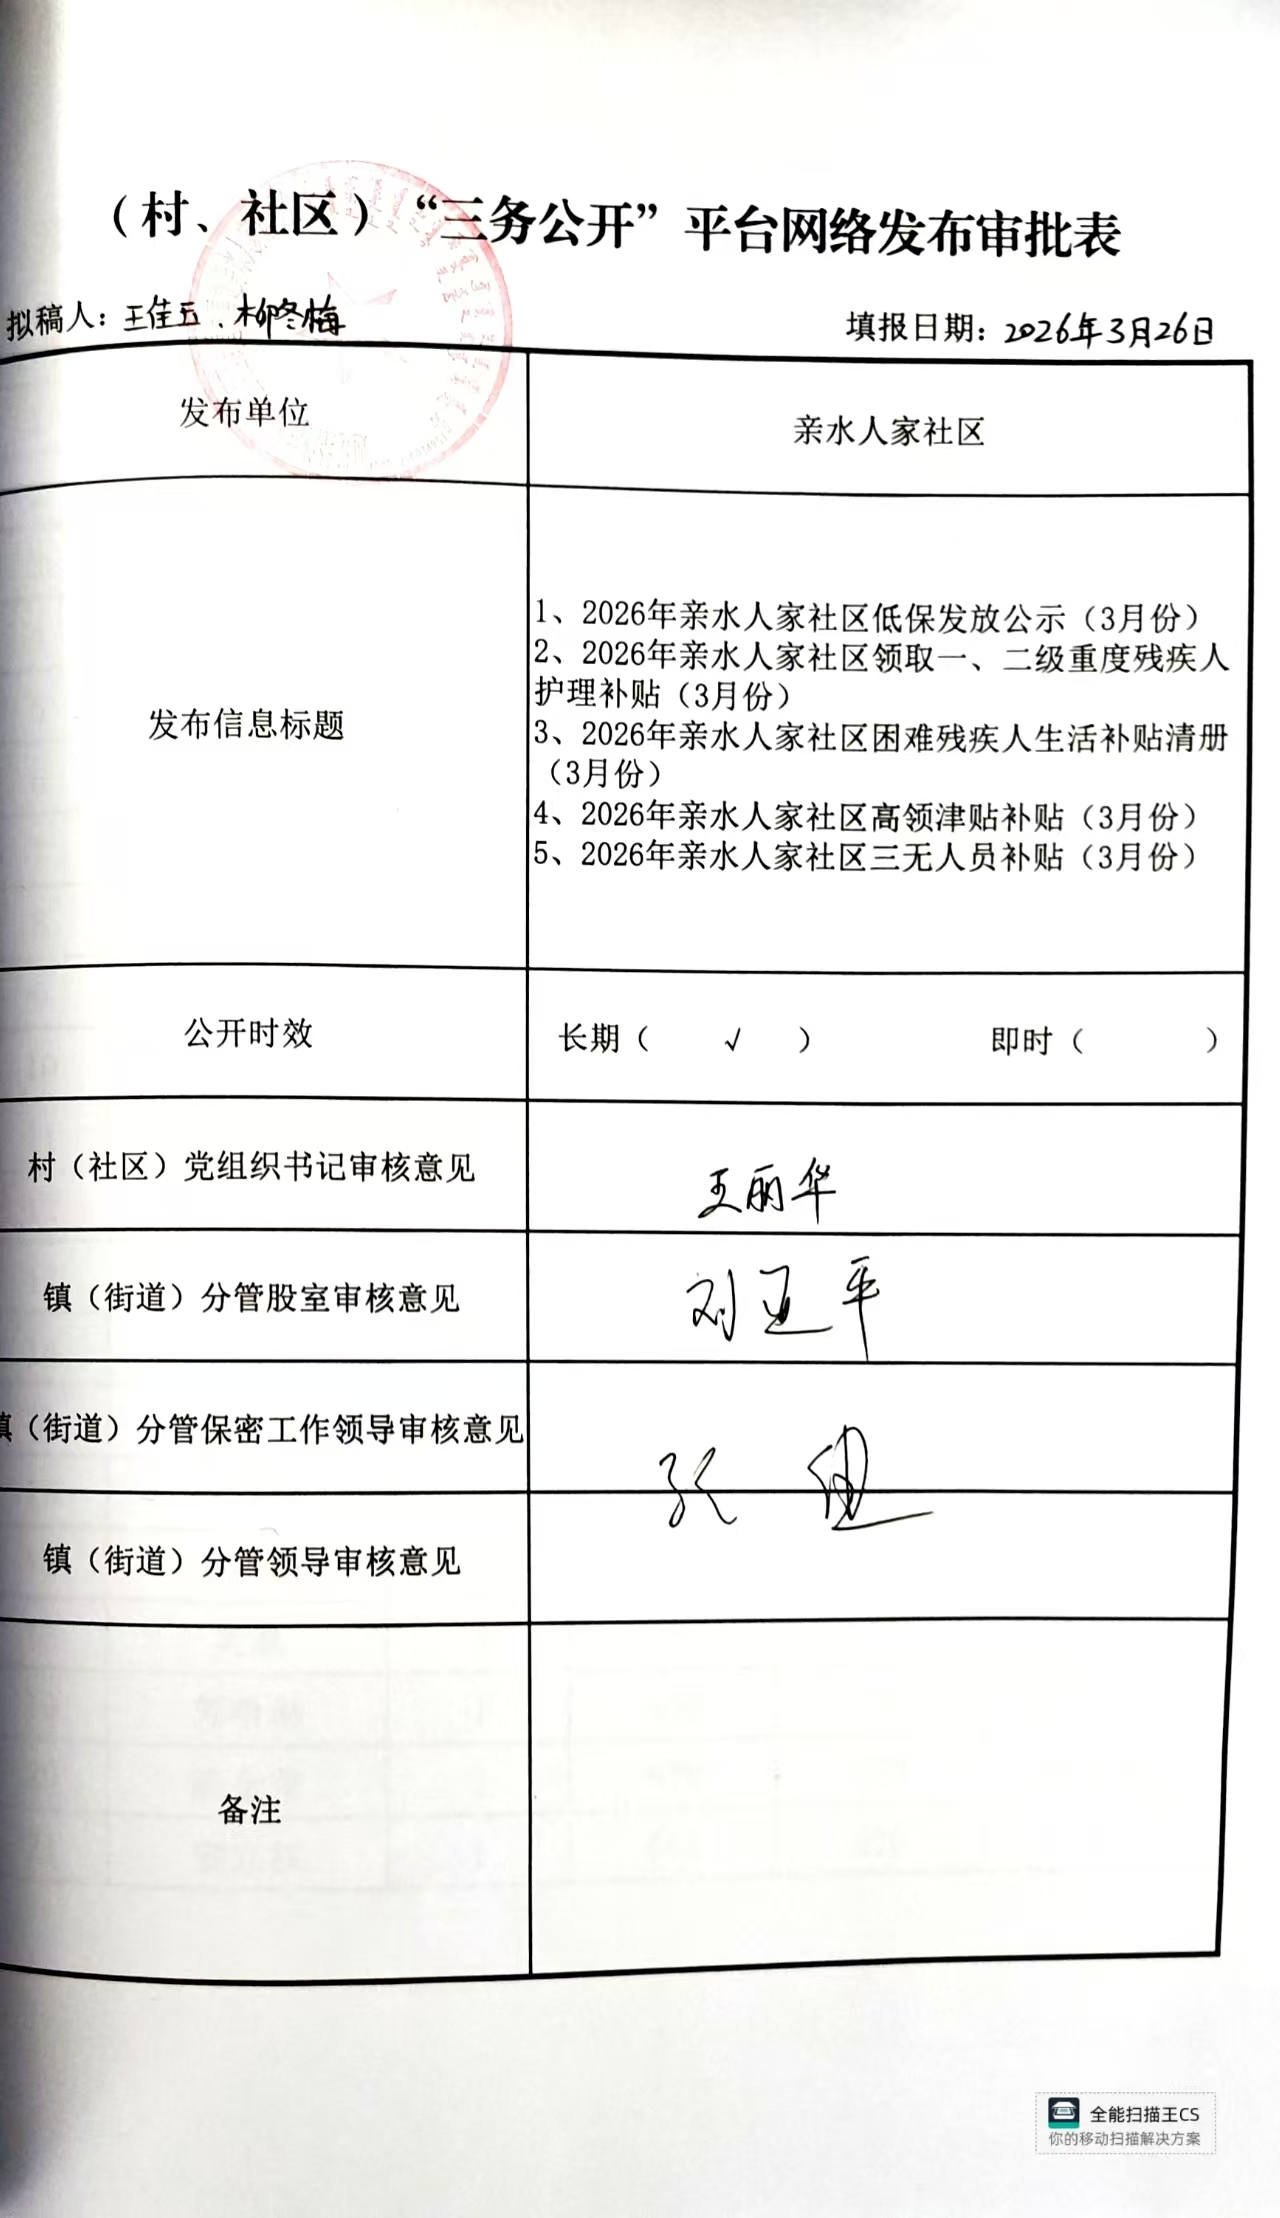 （村、社区）“三务公开”平台网络发布审批表
拟稿人：王佳玉、柳冬梅
填报日期：2026年3月26日
发布单位
亲水人家社区
发布信息标题
1、2026年亲水人家社区低保发放公示（3月份）
2、2026年亲水人家社区领取一、二级重度残疾人
护理补贴（3月份）
3、2026年亲水人家社区困难残疾人生活补贴清册
（3月份）
4、2026年亲水人家社区高领津贴补贴（3月份）
5、2026年亲水人家社区三无人员补贴（3月份）
公开时效
长期（ √ ） 即时（ ）
村（社区）党组织书记审核意见
王丽华
镇（街道）分管股室审核意见
刘亚平
镇（街道）分管保密工作领导审核意见
张
镇（街道）分管领导审核意见
备注
全能扫描王CS
你的移动扫描解决方案